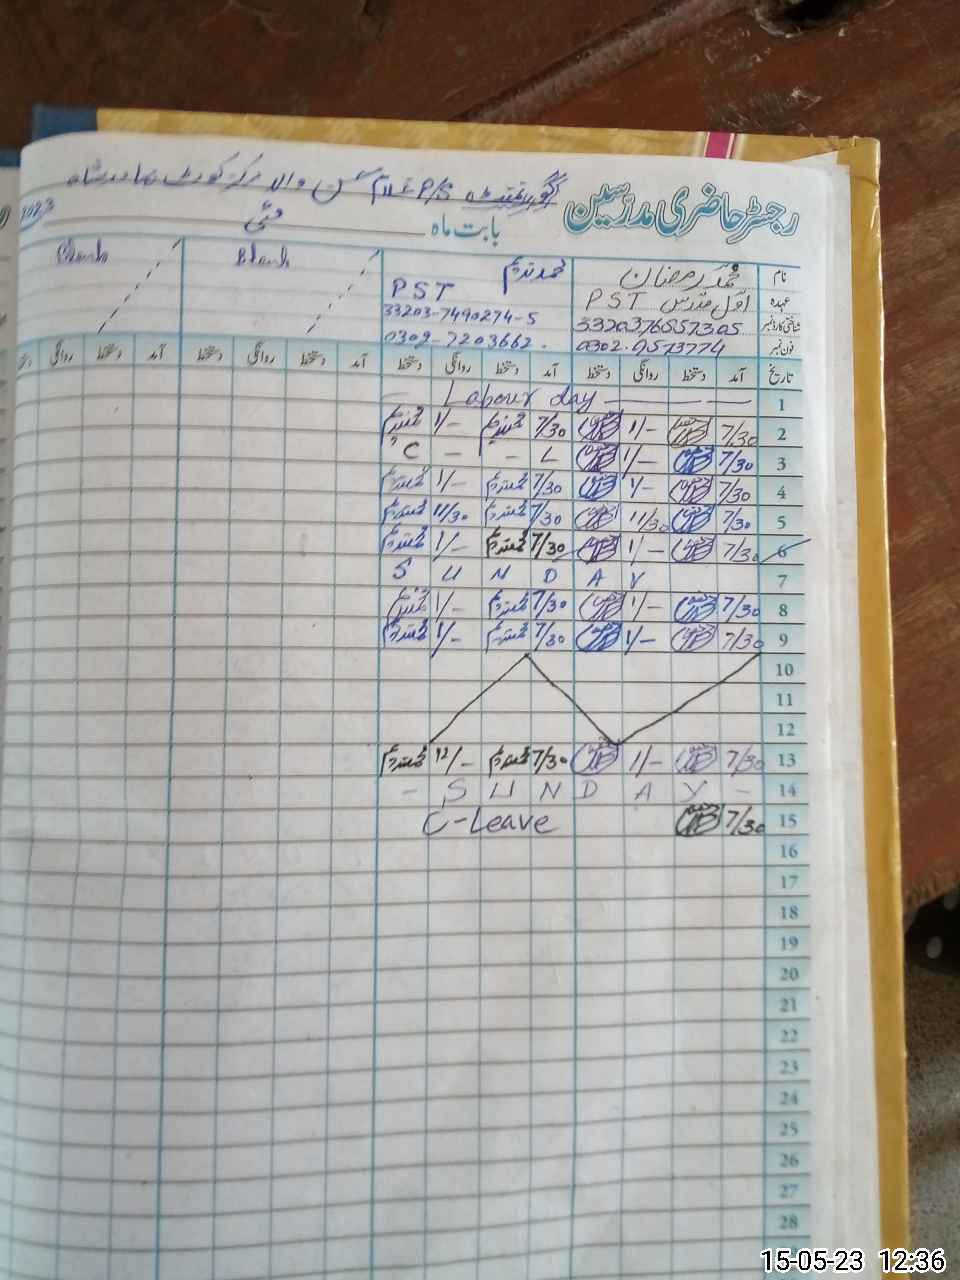 رجسٹر حاضری مدرسین گورنمنٹ P/S غلام
بابت ماہ مئی 2023
نام محمد رمضان محمد ندیم Blank Blank
عہدہ اول مدرس PST PST
شناختی کارڈ نمبر 3320376557305 33203-7490274-5
فون نمبر 0302-9573774 0302-7203662
تاریخ آمد دستخط روانگی دستخط آمد دستخط روانگی دستخط آمد دستخط روانگی دستخط آمد دستخط روانگی
1 Labour day
2 7/30 1/- 7/30 محمد ندیم 1/- محمد ندیم
3 7/30 1/- C - - L
4 7/30 1/- 7/30 محمد ندیم 1/- محمد ندیم
5 7/30 11/30 7/30 محمد ندیم 11/30 محمد ندیم
6 7/30 1/- 7/30 محمد ندیم 1/- محمد ندیم
7 S U N D A Y
8 7/30 1/- 7/30 محمد ندیم 1/- محمد ندیم
9 7/30 1/- 7/30 محمد ندیم 1/- محمد ندیم
10
11
12
13 7/30 1/- 7/30 محمد ندیم 12/- محمد ندیم
14 - S U N D A Y -
15 7/30 C-Leave
16
17
18
19
20
21
22
23
24
25
26
27
28
15-05-23 12:36